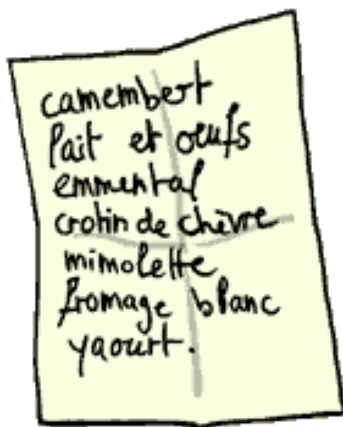 camembert
lait et oeufs
emmental
crotin de chèvre
mimolette
fromage blanc
yaourt.